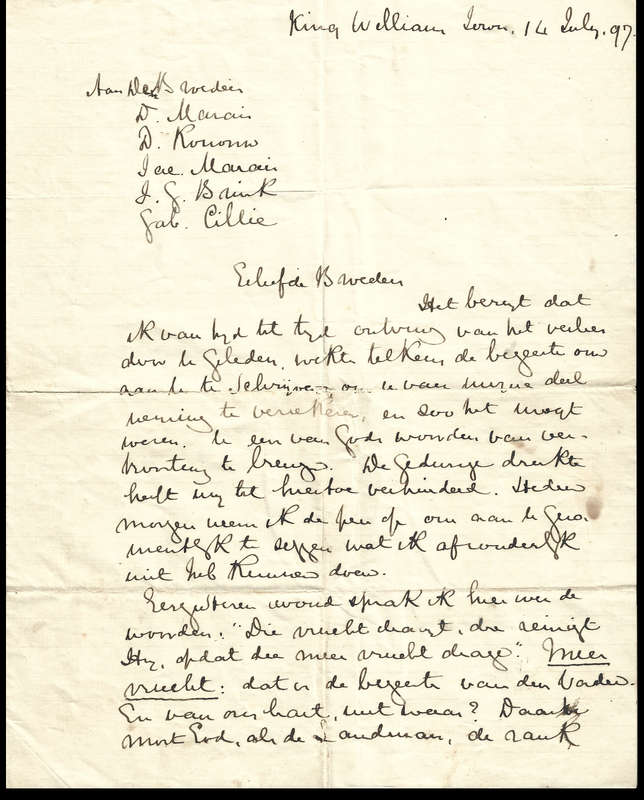 King William Town. 14 July. 97.
Aan Den Broeders
D. Marais
D. Rossouw
Jac. Marais
J. G. Brink
Gab. Cillie
Geliefde Broeders
Het berigt dat
ik van tyd tot tyd ontving van het verlies
door U geleden, wekte telkens de begeerte om
aan U te schryven om U van myne deel
neming te verzekeren, en zoo het mogt
wezen, U een van Gods woorden van ver-
troosting te brengen. De gedurige drukte
heeft my tot hiertoe verhinderd. Heden
morgen neem ik de pen op om aan U geza-
mentlyk te zeggen wat ik afzonderlyk
niet heb kunnen doen.
Eergisteren avond sprak ik hier over de
woorden: "Die vrucht draagt, die reinigt
Hy, opdat zee meer vrucht drage". Meer
vrucht: dat is de begeerte van den Vader.
En van ons hart, niet waar? Daartoe
moet God, als de Landman, de rank